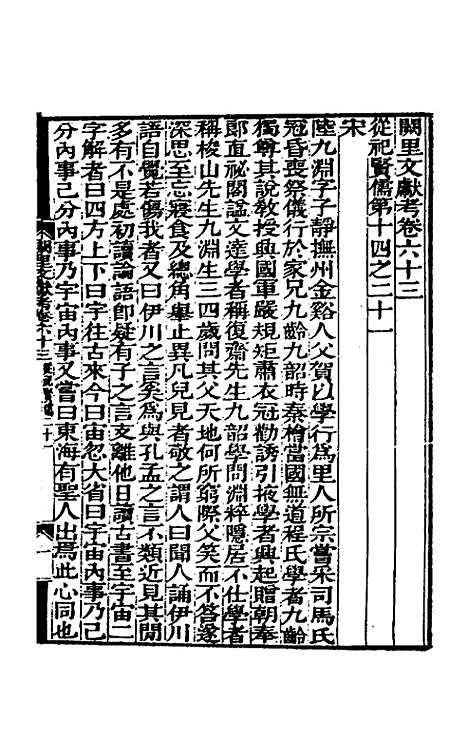 闕里文獻考卷六十三
從祀賢儒第十四之二十一
宋
陸九淵字子靜撫州金谿人父賀以學行爲里人所宗嘗采司馬氏
冠昏喪祭儀行於家兄九齡九韶時秦檜當國無道程氏學者九齡
獨尊其說教授興國軍嚴規矩肅衣冠勸誘引掖學者興起贈朝奉
郎直祕閣諡文達學者稱復齋先生九韶學問淵粹隱居不仕學者
稱梭山先生九淵生三四歲問其父天地何所窮際父笑而不答遂
深思至忘寢食及總角舉止異凡兒見者敬之謂人曰聞人誦伊川
語自覺若傷我者又曰伊川之言奚爲與孔孟之言不類近見其閒
多有不是處初讀論語卽疑有子之言支離他日讀古書至宇宙二
字解者曰四方上下曰宇往古來今曰宙忽大省曰宇宙內事乃己
分內事己分內事乃宇宙內事又嘗曰東海有聖人出焉此心同也
闕里文獻考卷六十三 從祀賢儒二十一
一